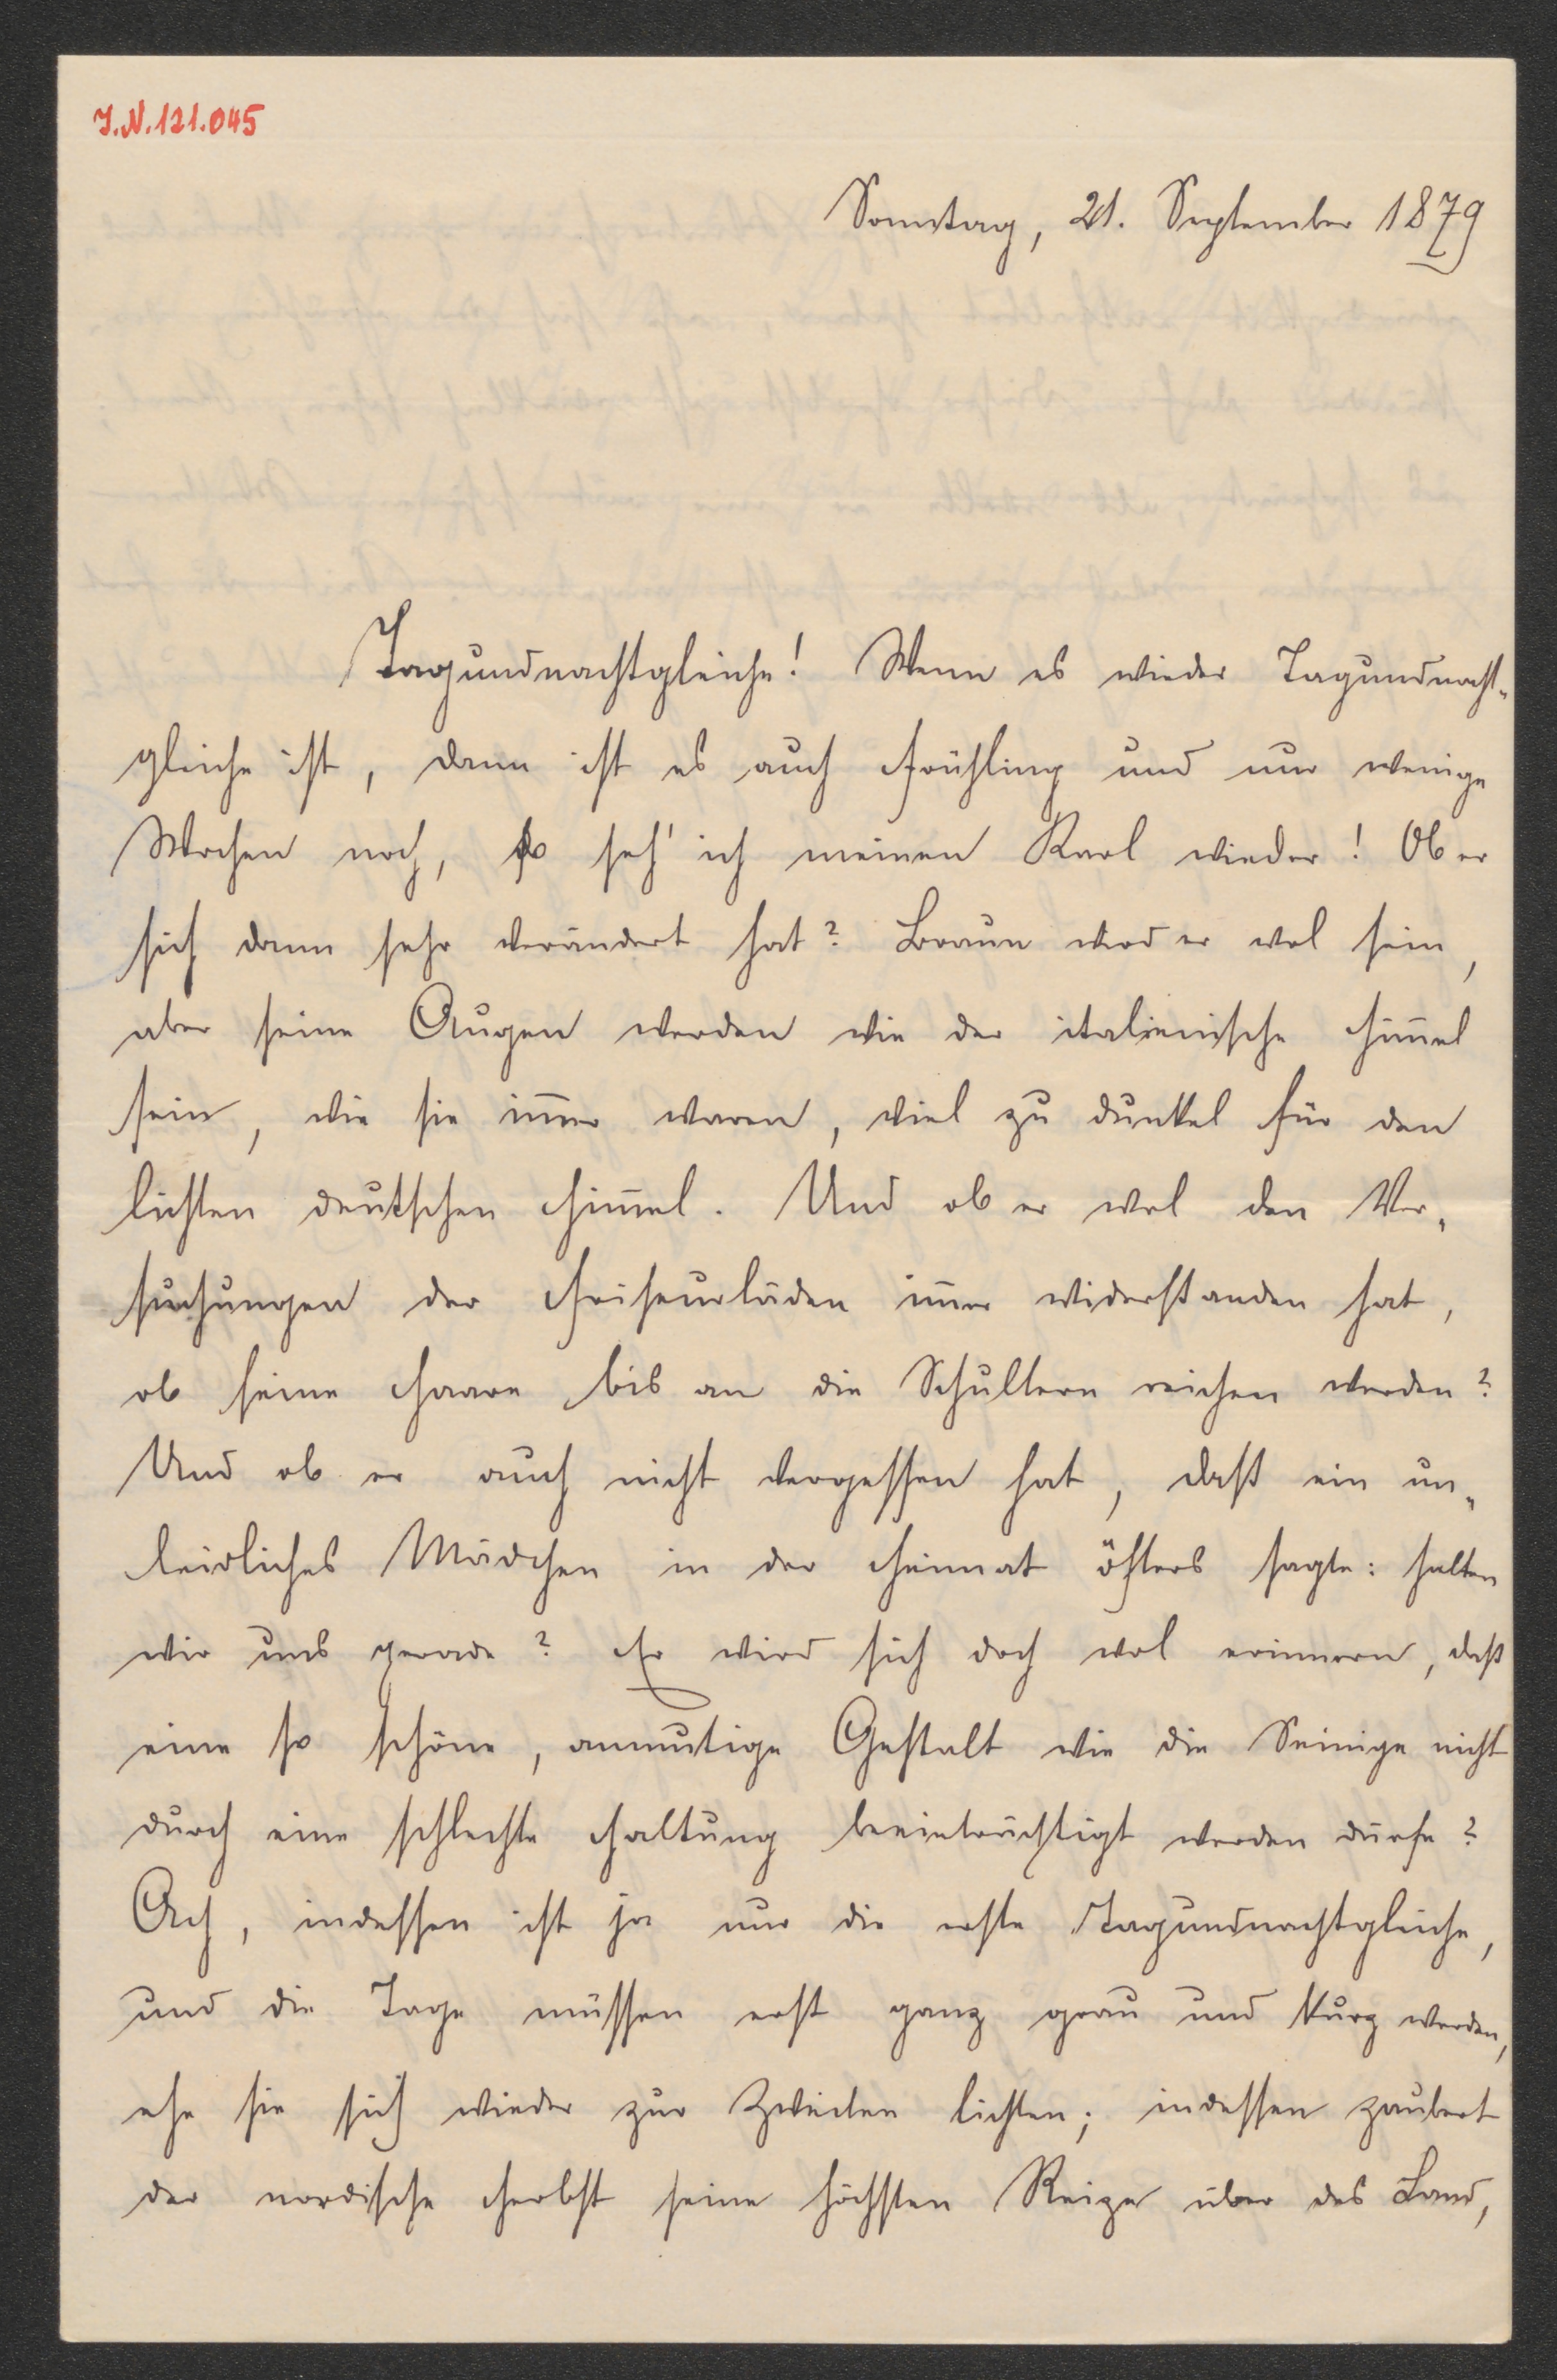 J.N.121.045
Sonntag, 21. September 1879
Tagundnachtgleiche! Wenn es wieder Tagundnacht-
gleiche ist, dann ist es auch Frühling und nur wenige
Wochen noch, so seh' ich meinen Karl wieder! Ob er
sich dann sehr verändert hat? Braun wird er wol sein,
aber seine Augen werden wie der italienische Him̅el
sein, wie sie im̅er waren, viel zu dunkel für den
lichten deutschen Him̅el. Und ob er wol den Ver-
suchungen der Friseurläden im̅er widerstanden hat,
ob seine Haare bis an die Schultern reichen werden?
Und ob er auch nicht vergessen hat, daß ein un-
leidliches Mädchen in der Heimat öfters sagte: halten
wir uns gerade? Er wird sich doch wol erinnern, daß
eine so schöne, anmutige Gestalt wie die Seinige nicht
durch eine schlechte Haltung beeinträchtigt werden dürfe?
Ach, indessen ist ja nur die erste Tagundnachtgleiche,
und die Tage müssen erst ganz grau und kurz werden,
ehe sie sich wieder zur Zweiten lichten; indessen zaubert
der nordische Herbst seine höchsten Reize über das Land,